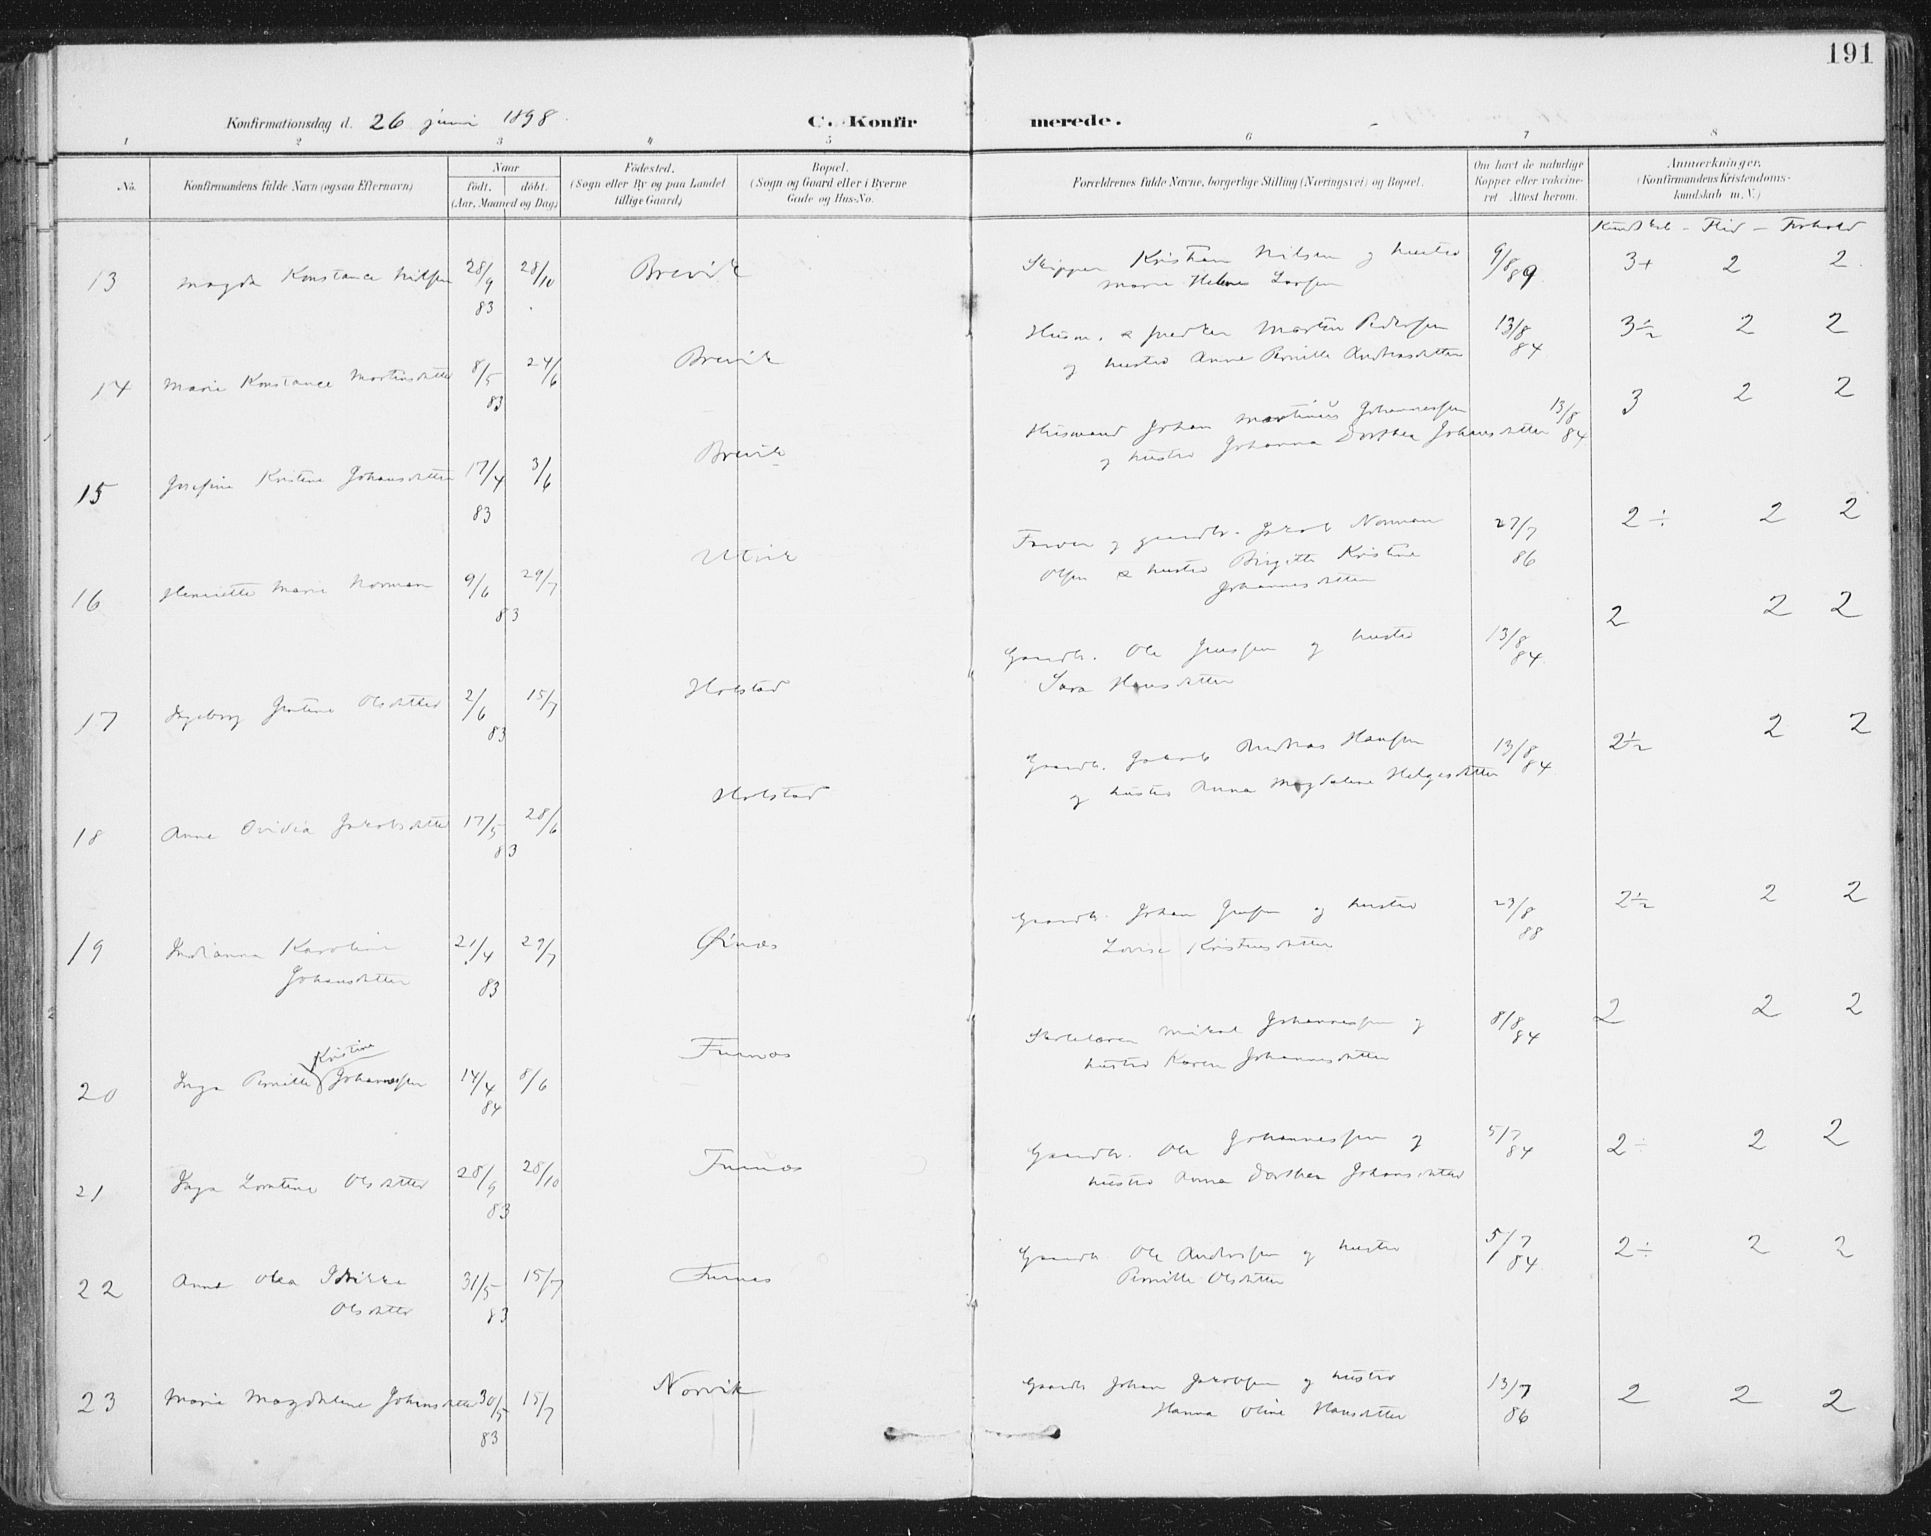 191
Konfirmationsdag d. 26 juni 1898.
C. Konfirmerede.
1 2 3 4 5 6 7 8
No.
Konfirmandens fulde Navn (ogsaa Efternavn)
Naar
født. døbt.
(Aar, Maaned og Dag)
Fødested.
(Sogn eller By og paa Landet
tillige Gaard)
Bopæl.
(Sogn og Gaard eller i Byerne
Gade og Hus-No.
Forældrenes fulde Navne, borgerlige Stilling (Næringsvei) og Bopæl.
Om havt de naturlige
Kopper eller vakcine-
ret Attest herom.
Anmærkninger.
(Konfirmandens Kristendoms-
kundskab m. V.)
Kundskab - Flid - Forhold
13 Magda Konstance Nilsen 28/9 83 28/10 Brevik
Skipper Kristian Nilsen og hustro
Marie Helene Larsen
9/8 89 3+ 2 2
14 Marie Konstance Martinsdatter 8/5 83 24/6 Brevik
Husm. & snedker Martin Pedersen
og hustro Anne Pernille Andreasdatter
13/8 84 3½ 2 2
15 Josefine Kristine Johansdatter 17/4 83 3/6 Brevik
Husmand Johan Martinus Johannessen
og hustro Johanna Dorthea Johansdatter
13/8 84 3 2 2
16 Henriette Marie Norman 9/6 83 29/7 Utvik
Farver og gaardb. Jakob Norman
Olsen & hustro Birgitte Kristine
Johannesdatter
27/7 86 2÷ 2 2
17 Ingeborg Olsdatter 2/6 83 15/7 Holstad
Gaardb. Ole Jensen og hustro
Sara Hansdatter
13/8 84 2 2 2
18 Anne Ovidia Jakobsdatter 17/5 83 28/6 Holstad
Gaardb. Jakob Andreas Hansen
og hustro Anna Magdalene Helgesdatter
13/8 84 2½ 2 2
19 Indianna Karoline
Johansdatter
21/4 83 29/7 Øinæs
Gaardb. Johan Jensen og hustro
Lovise Kristensdatter
23/8 88 2½ 2 2
20 Inga Pernille Kristine Johannessen 14/4 84 8/6 Furnæs
Skolelærer Mikal Johannessen og
hustro Karen Johannesdatter
8/8 84 2 2 2
21 Inga Lorntine Olsdatter 28/9 83 28/10 Furnæs
Gaardb. Ole Johannessen og
hustro Anna Dorthea Johansdatter
5/7 84 2÷ 2 2
22 Anna Olea
Olsdatter
31/5 83 15/7 Furnes
Gaardb. Ole Andersen og hustro
Pernille Olsdatter
5/7 84 2÷ 2 2
23 Marie Magdalene Johansdatter 30/5 83 15/7 Norvik
Gaardb Johan Jakobsen og hustro
Hanna Oline Hansdatter
13/7 86 2 2 2